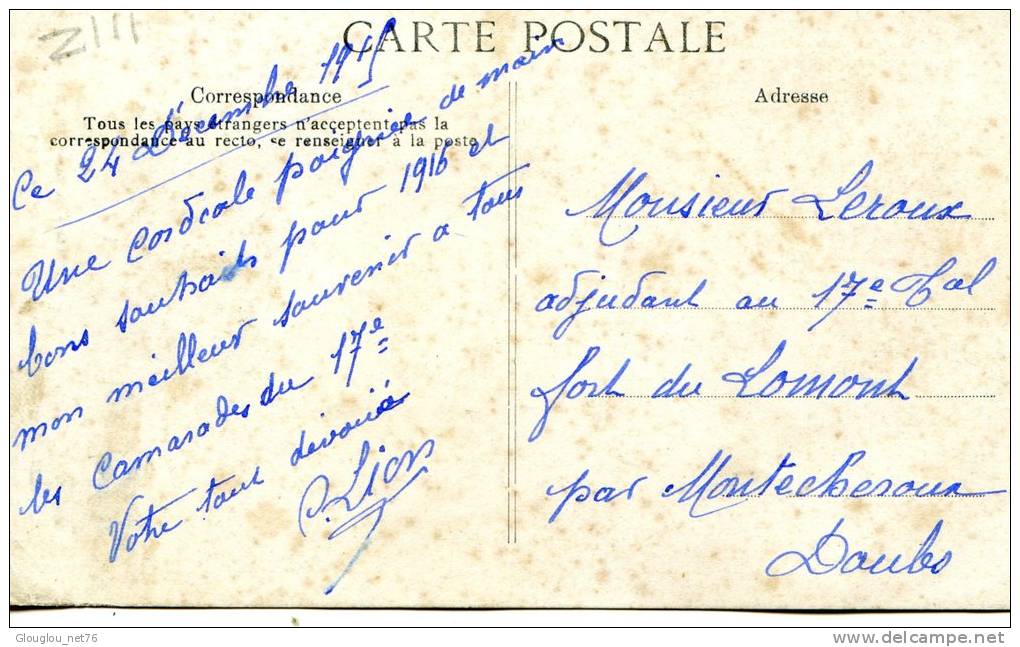 ZIII
CARTE POSTALE
Correspondance
Tous les pays étrangers n'acceptent pas la
correspondance au recto, se renseigner à la poste
Adresse
Ce 24 Décembre 1915
Une cordeale poignée de main
bons souhaits pour 1916 et
mon meilleur souvenir a tous
les Camarades du 17e
Votre tout dévoué
Lion
Monsieur Leroux
adjudant au 17e
fort du Lomont
par Montecheroux
Doubs
Glouglou_net76
delcampe.net